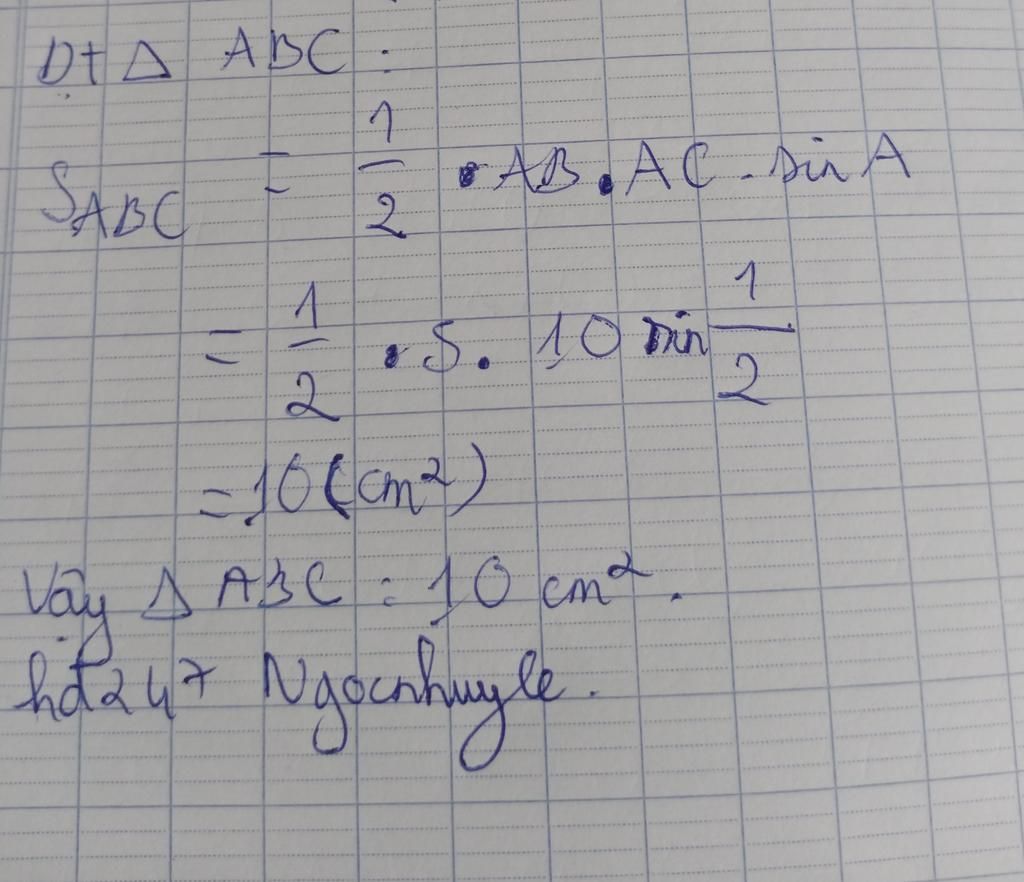 DT Δ ABC :
S_ABC = 1/2 . AB . AC . sin A
= 1/2 . 5 . 10 sin 1/2
= 10 (cm²)
Vậy Δ ABC : 10 cm².
hd247 Ngocnhuyle.